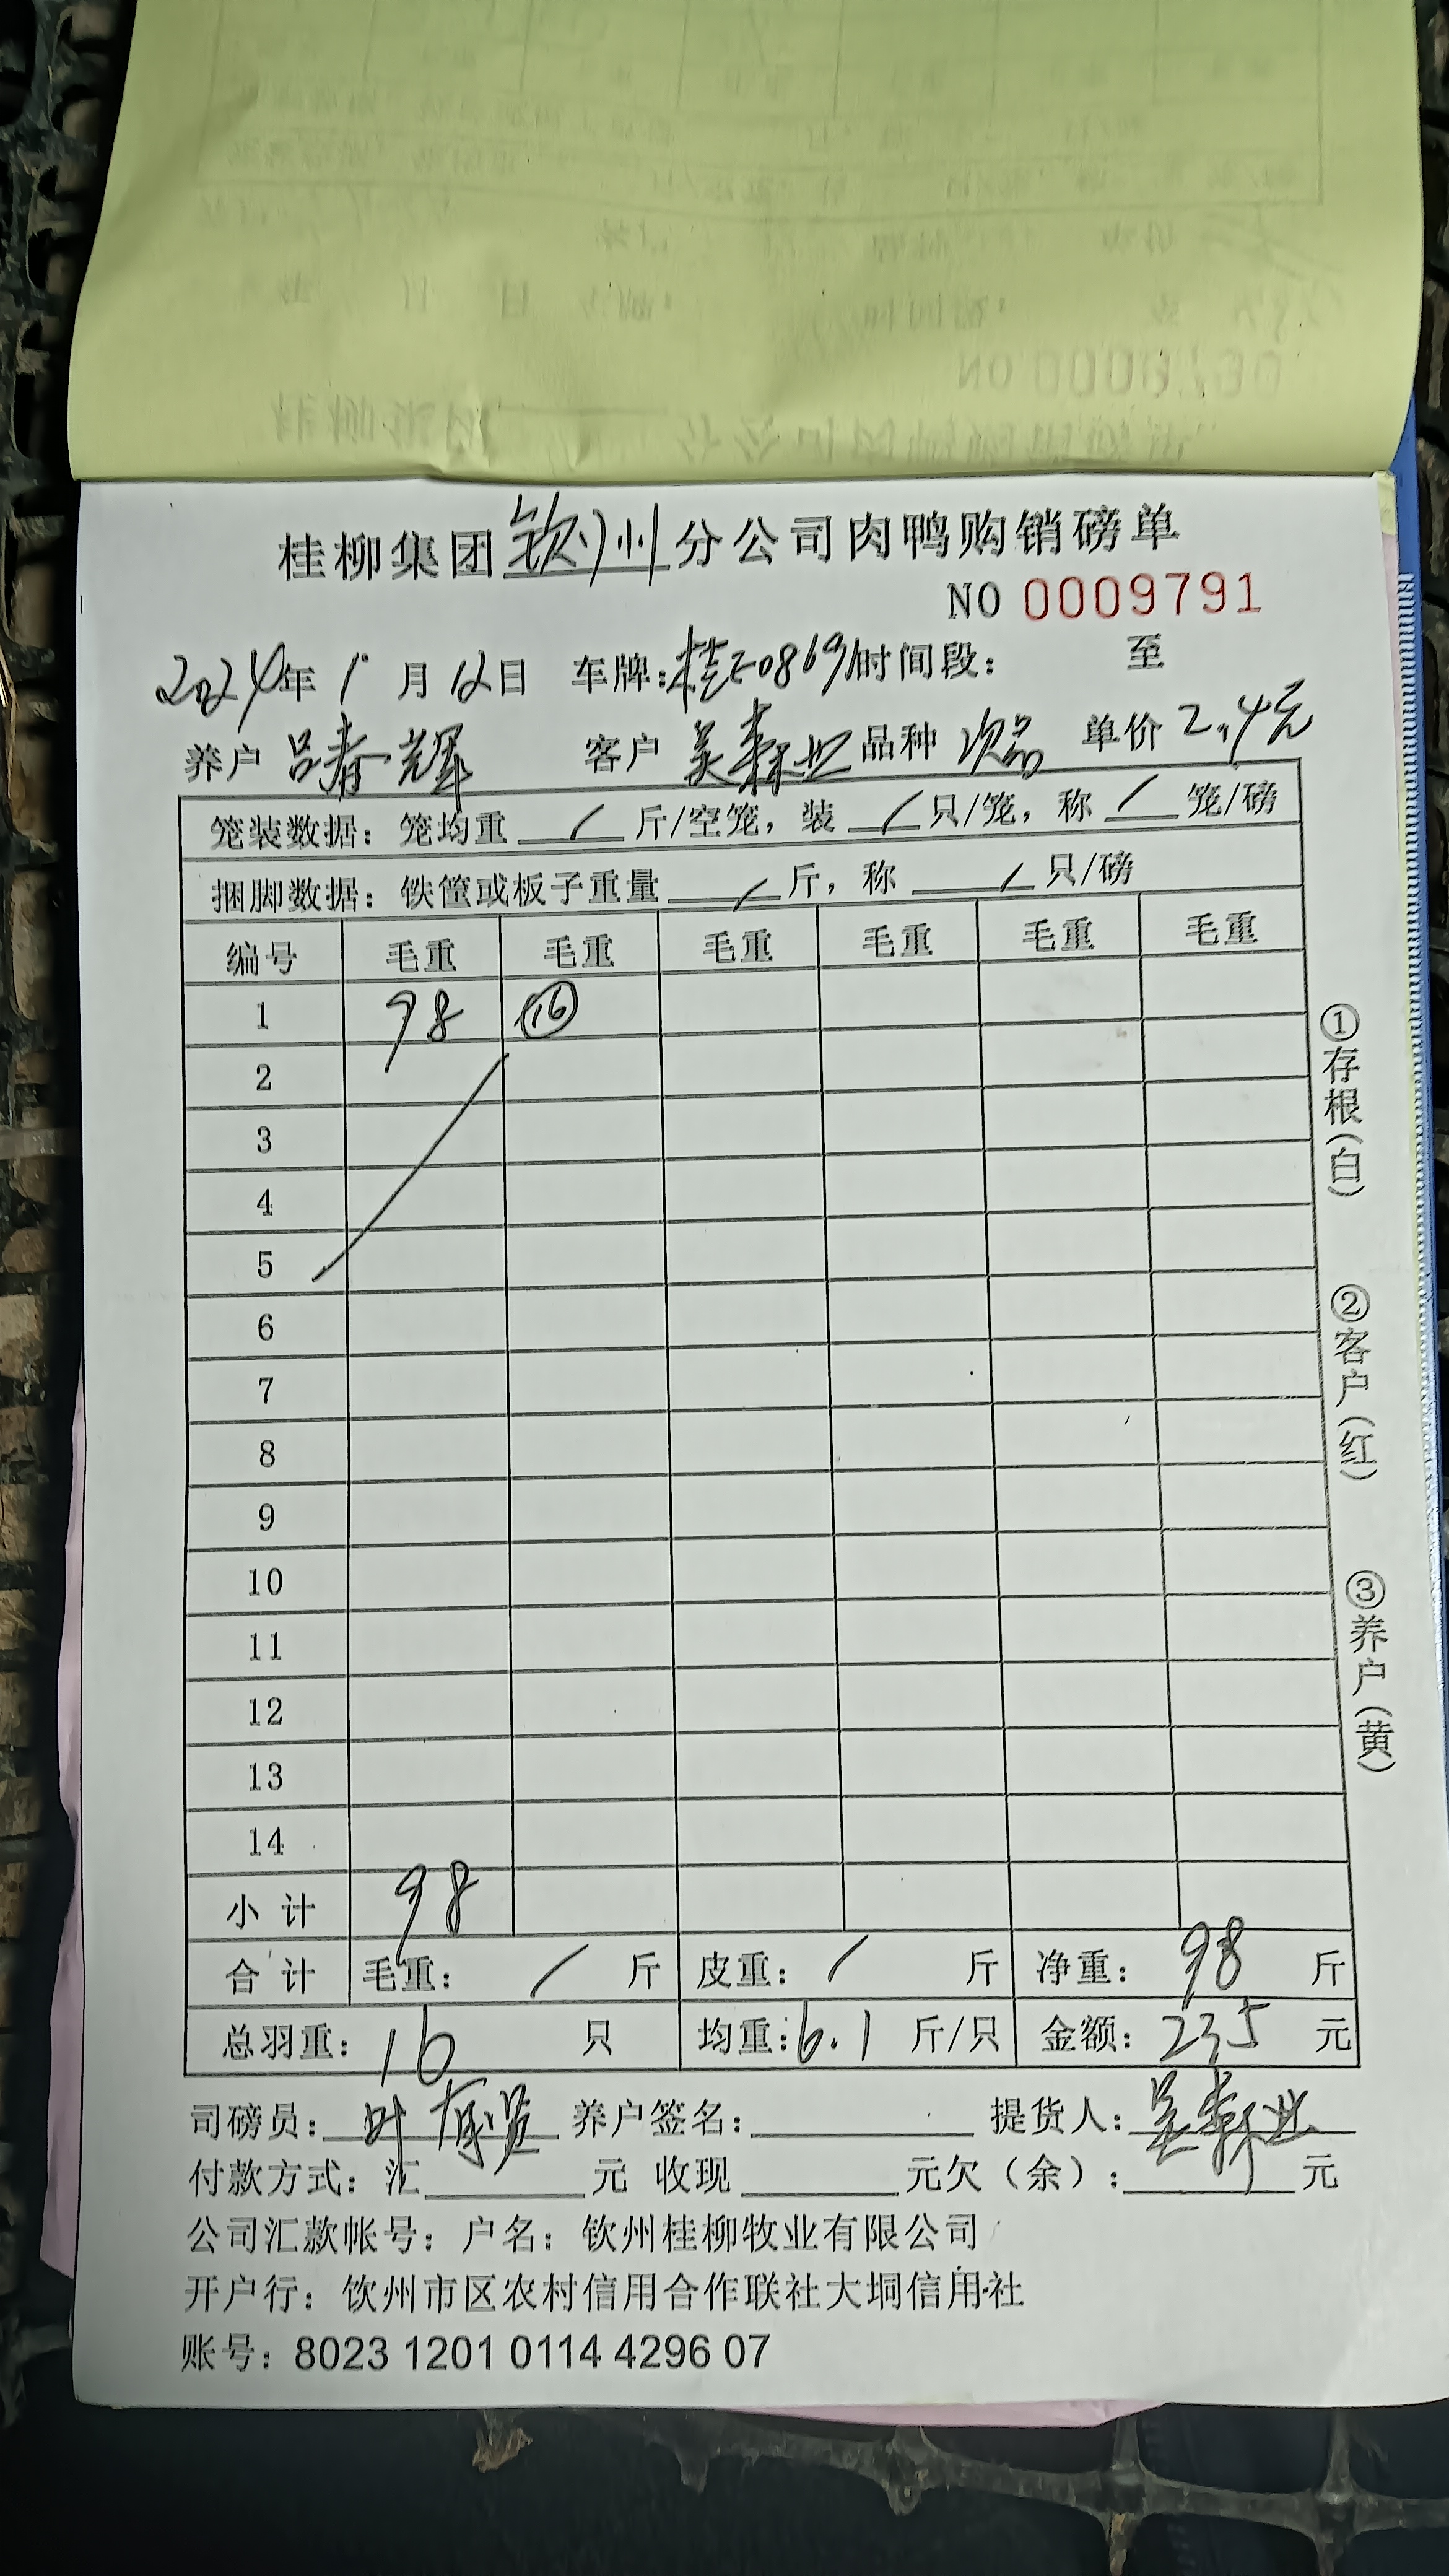 桂柳集团钦州分公司肉鸭购销磅单
NO 0009791
2024年1月12日 车牌:桂E0869 时间段: 至
养户 吕春辉 客户 吴森业 品种 次品 单价 2.4元
笼装数据: 笼均重 / 斤/空笼, 装 / 只/笼, 称 / 笼/磅
捆脚数据: 铁筐或板子重量 / 斤, 称 / 只/磅
编号 毛重 毛重 毛重 毛重 毛重 毛重
1 98 16
2
3
4
5
6
7
8
9
10
11
12
13
14
小计 98
合计 毛重: / 斤 皮重: / 斤 净重: 98 斤
总羽重: 16 只 均重: 6.1 斤/只 金额: 235 元
司磅员: 叶 养户签名: 提货人: 吴森业
付款方式: 汇 元 收现 元欠(余): 元
公司汇款帐号: 户名: 钦州桂柳牧业有限公司
开户行: 钦州市区农村信用合作联社大垌信用社
账号: 8023 1201 0114 4296 07
①存根(白)
②客户(红)
③养户(黄)